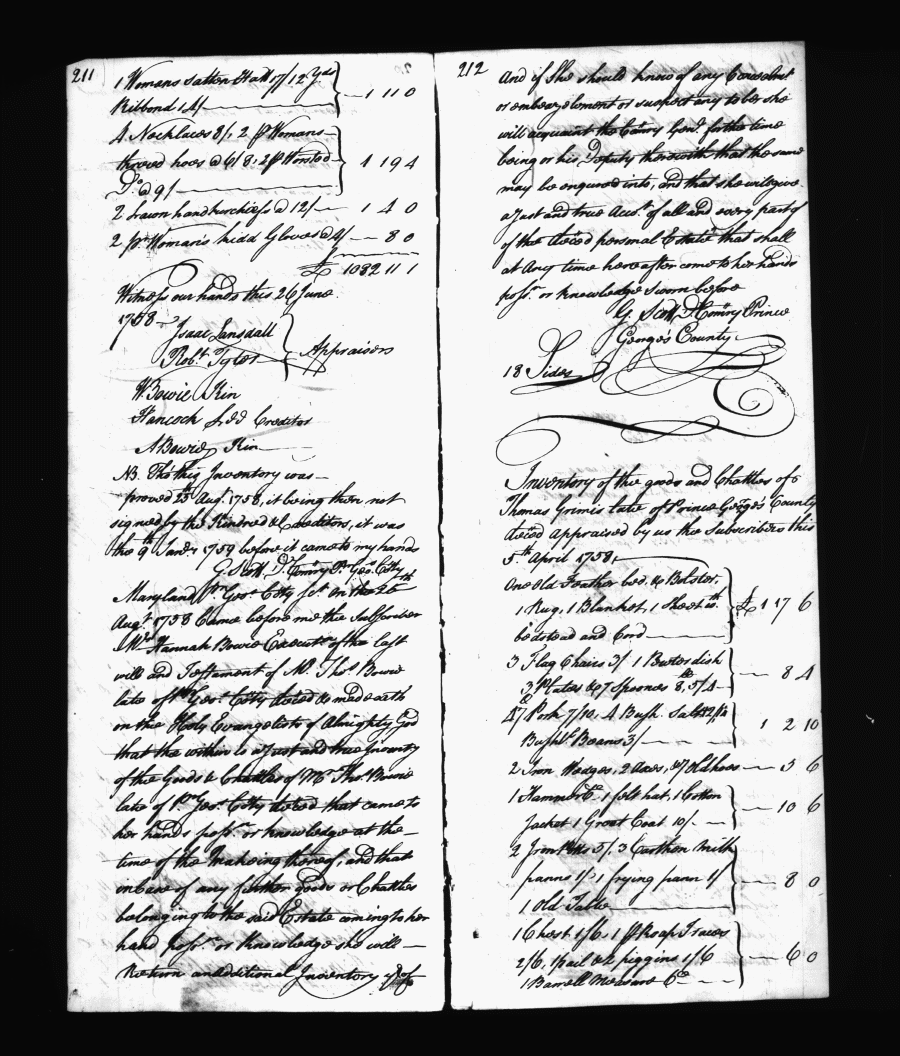 211
1 Womans Satten Hatt 17/ 12 Yds
Ribbond 14/ 1 11 0
4 Necklaces 8/, 2 pr Womans
threed hoes @ 6/8, 2 pr Worsted 1 19 4
Do. @ 9/
2 Lawn handkurchiefs @ 12/ 1 4 0
2 pr Woman's kidd Gloves @ 4/ 8 0
£ 1032 11 1
Witness our hands this 26 June
1758
Isaac Lansdall
Robt. Tyler
Appraisers
W. Bowie Kin
Hancock Lee Creditor
A Bowie Kin
NB. Tho' this Inventory was
proved 25 Augt. 1758, it being then not
signed by the Kindred & Creditors, it was
the 9th Jany 1759 before it came to my hands
G. Scott Dy. Comry Pr. Geo's. Cty
Maryland Pr Geos. Cty sct. On the 25th
Augt. 1758 Came before me the Subscriber
Mrs. Hannah Bowie Executrx of the last
will and Testament of Mr. Thos. Bowie
late of Pr. Geos. Cty deced & made oath
on the Holy Evangelists of Almighty God
that the within is a Just and true Inventy
of the Goods & Chattles of Mr. Thos. Bowie
late of Pr. Geos. Cty deced that came to
her hands possn. or knowledge at the
time of the makeing thereof, and that
in Case of any further goods or Chattles
belonging to the said Estate coming to her
hand possn. or knowledge she will
Return an additional Inventory thereof
212
And if She should know of any Concealmt
or embezelement or suspect any to be, she
will acquaint the Comry Genl. for the time
being or his Deputy therewith that the same
may be enquired into, and that she will give
a Just and true Acct. of all and every part of
of the deced personal Estate that shall
at Any time hereafter come to her hands
possn. or knowledge sworn before
G. Scott D Comry Prince
George's County
18 Sides
Inventory of the goods and Chattles of
Thomas Grimes late of Prince George's County
deced Appraised by us the Subscribers this
5th April 1758,
One Old Feather bed, & Bolster,
1 Rug, 1 Blanket, 1 Sheet wth. £ 1 17 6
bedstead and Cord
3 Flag Chairs 3/ 1 Pewter dish
3 Plates & 7 Spoones 5/4 8 4
47 Pork 7/10, 4 Bush. Salt 12/
Bushl. Beans 3/ 1 2 10
2 Iron Wedges, 2 Axes, & 7 Old hoes 5 6
1 Hammer &c. 1 felt hat, 1 Cotton
Jacket 1 Great Coat 10/ 10 6
2 Iron Potts 5/, 3 Earthen Milk
panns 1/, 1 frying pann 1/ 8 0
1 Old Table
1 Chest 1/6, 1 pr Roap Traces
2/6, 1 pail & piggins 1/6 6 0
1 Barrell Measure &c.